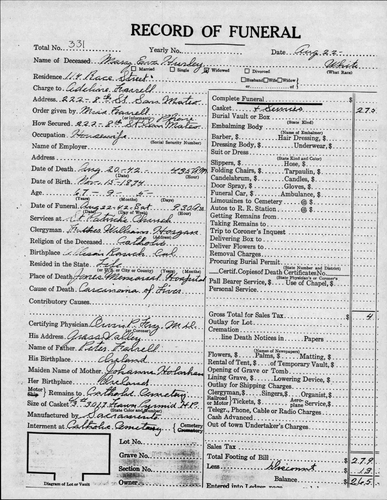 RECORD OF FUNERAL
Total No. 331 Yearly No. Date Aug 22
Name of Deceased Mary Eva Hurley White
Married Single Widowed Divorced (What Race)
Husband Wife Widow of
Residence Race Street
Charge to Adeline Farrell
Address 222-8th St. San Mateo
Order given by Miss Farrell
How Secured 222-8th San Mateo
Occupation Housewife
(Social Security Number)
Name of Employer
Address
Date of Death Aug 20-42 4:35 PM
(Hour)
Date of Birth Nov. 15-1874
Age 67-9-5
(Years) (Months) (Days)
Date of Funeral Aug 22-42 Sat. 9:30 AM
(Hour)
Services at St. Patricks Church
Clergyman Father William Horgan
Religion of the Deceased Catholic
Birthplace Ranch, Cal
Resided in the State Life
(or U.S. City or County)
Place of Death Jones Memorial Hospital
Cause of Death Carcinoma of Liver
Contributory Causes
Certifying Physician M.D.
(or Coroner)
His Address Grass Valley
Name of Father Peter Farrell
His Birthplace Ireland
Maiden Name of Mother Johanna Holahan
Her Birthplace Ireland
Motor Ship Remains to Catholic Cemetery
Size of Casket
(State Color and Number)
Manufactured by Sacramento
Interment at Catholic Cemetery Cemetery Crematory
Lot No.
Grave No.
Section No.
Block No.
Owner
Diagram of Lot or Vault
Complete Funeral
Casket & Services 270
Burial Vault or Box
(State Kind)
Embalming Body
(Name of Embalmer)
Barber, Hair Dressing,
Dressing Body, Underwear,
Suit or Dress
(State Kind and Color)
Slippers, Hose,
Folding Chairs, Tarpaulin,
Candelabrum, Candles,
Door Spray, Gloves,
Funeral Car, Ambulance,
Limousines to Cemetery @ $
Autos to R. R. Station @ $
Getting Remains from
Taking Remains to
Trip to Coroner's Inquest
Delivering Box to
Deliver Flowers to
Removal Charges
Procuring Burial Permit
(State Number and District)
Certif. Copies of Death Certificates
(State No. if Physician or Health Dept.)
Pall Bearer Service, Use of Chapel,
Personal Service
Gross Total for Sales Tax 4
Outlay for Lot
Cremation
line Death Notices in Papers
(Names of Newspapers)
Flowers, Palms, Matting,
Rental of Tent, of Temporary Vault,
Opening of Grave or Tomb
Lining Grave, Lowering Device,
Outlay for Shipping Charges
Clergyman, Singers, Organist,
Telegr., Phone, Cable or Radio Charges
Cash Advanced
Out of town Undertaker's Charges
Sales Tax
Total Footing of Bill 279
Less Discount 13
Balance 265